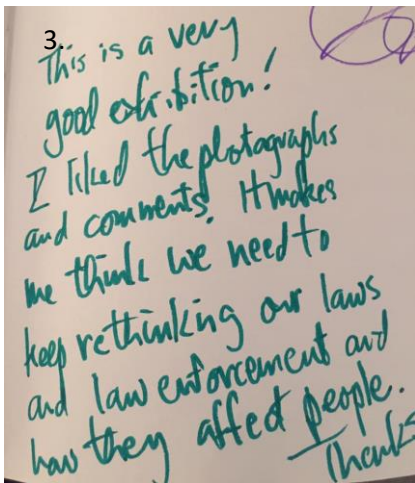 3.
This is a very
good exhibition!
I liked the photographs
and comments. It makes
me think we need to
keep rethinking our laws
and law enforcement and
how they affect people.
Thanks